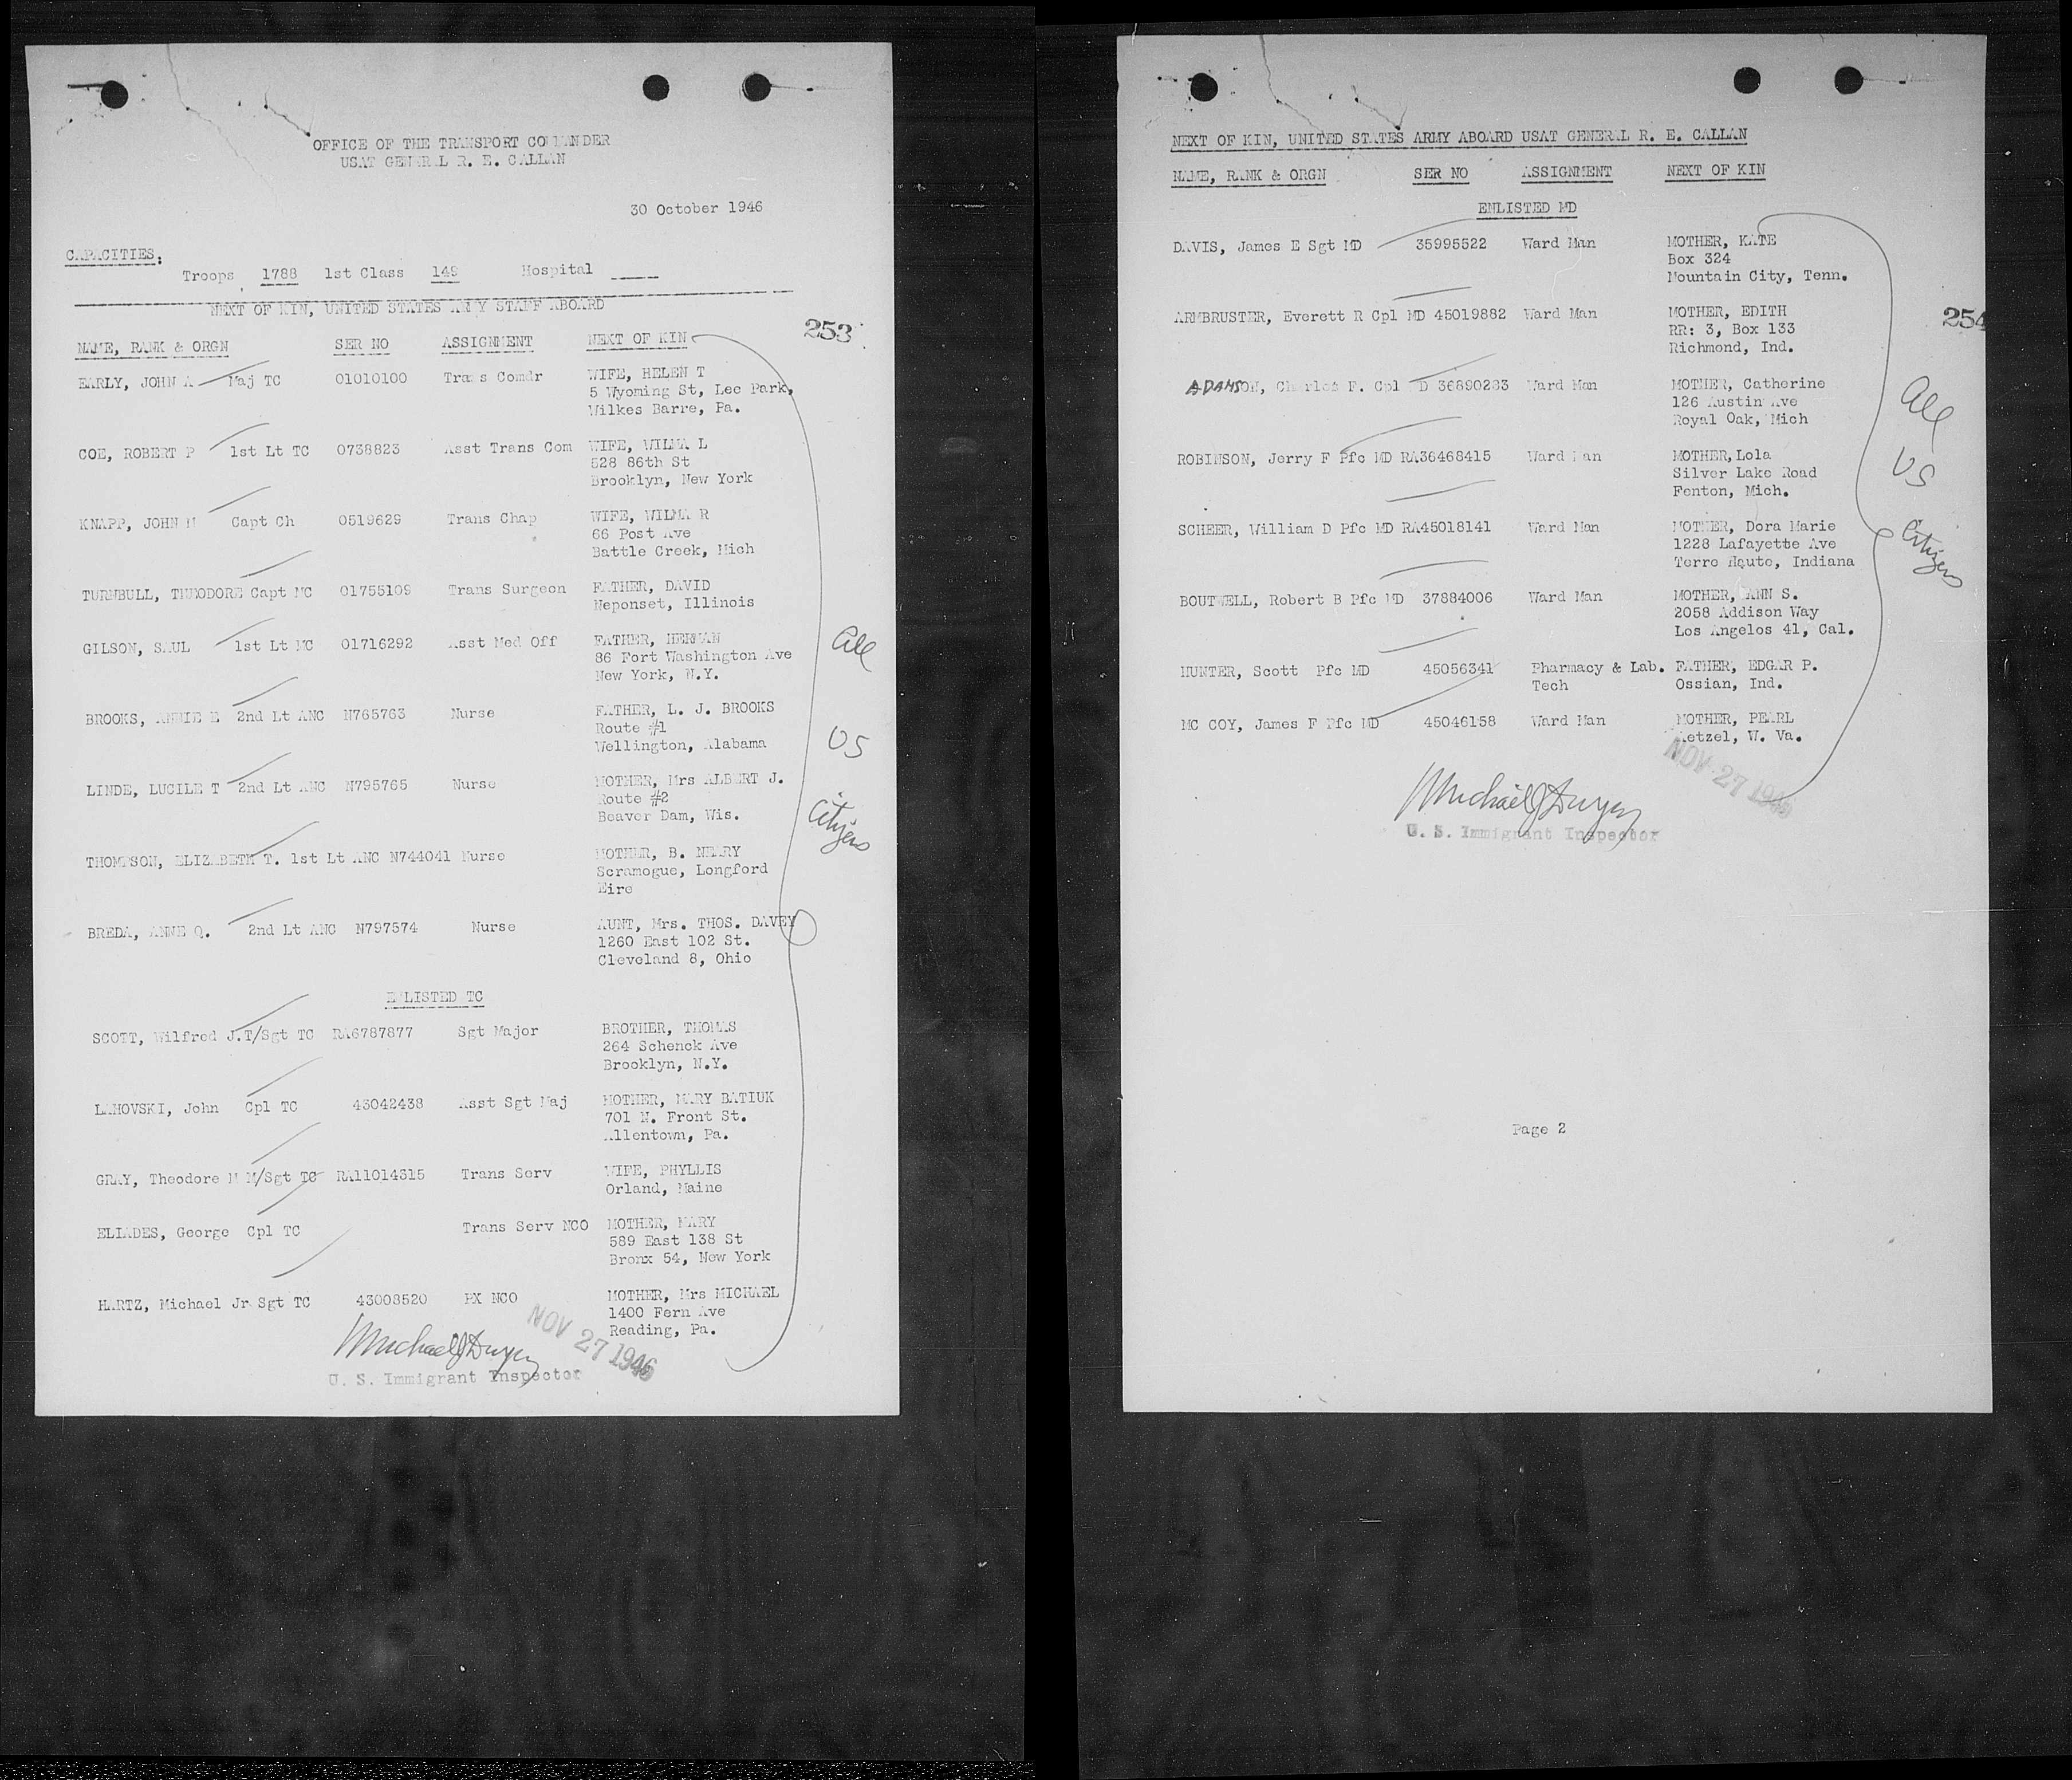 OFFICE OF THE TRANSPORT COMMANDER
USAT GENERAL R. E. CALLAN
30 October 1946
CAPACITIES:
Troops 1788 1st Class 149 Hospital ____
NEXT OF KIN, UNITED STATES ARMY STAFF ABOARD
253
NAME, RANK & ORGN SER NO ASSIGNMENT NEXT OF KIN
EARLY, JOHN A Maj TC 01010100 Trans Comdr WIFE, HELEN T
5 Wyoming St, Lee Park,
Wilkes Barre, Pa.
COE, ROBERT P 1st Lt TC 0738823 Asst Trans Com WIFE, WILMA L
528 86th St
Brooklyn, New York
KNAPP, JOHN H Capt Ch 0519629 Trans Chap WIFE, WILMA R
66 Post Ave
Battle Creek, Mich
TURNBULL, THEODORE Capt MC 01755109 Trans Surgeon FATHER, DAVID
Neponset, Illinois
GILSON, SAUL 1st Lt MC 01716292 Asst Med Off FATHER, HERMAN
86 Fort Washington Ave
New York, N.Y.
BROOKS, ANNIE E 2nd Lt ANC N765763 Nurse FATHER, L. J. BROOKS
Route #1
Wellington, Alabama
LINDE, LUCILE T 2nd Lt ANC N795765 Nurse MOTHER, Mrs ALBERT J.
Route #2
Beaver Dam, Wis.
THOMPSON, ELIZABETH T. 1st Lt ANC N744041 Nurse MOTHER, B. NEARY
Scramogue, Longford
Eire
BREDA, ANNE Q. 2nd Lt ANC N797574 Nurse AUNT, Mrs. THOS. DAVEY
1260 East 102 St.
Cleveland 8, Ohio
All
US
Citizens
ENLISTED TC
SCOTT, Wilfred J. T/Sgt TC RA6787877 Sgt Major BROTHER, THOMAS
264 Schenck Ave
Brooklyn, N.Y.
LAHOVSKI, John Cpl TC 43042438 Asst Sgt Maj MOTHER, MARY BATIUK
701 N. Front St.
Allentown, Pa.
GRAY, Theodore H M/Sgt TC RA11014315 Trans Serv WIFE, PHYLLIS
Orland, Maine
ELIADES, George Cpl TC Trans Serv NCO MOTHER, MARY
589 East 138 St
Bronx 54, New York
HARTZ, Michael Jr Sgt TC 43008520 PX NCO MOTHER, Mrs MICHAEL
1400 Fern Ave
Reading, Pa.
NOV 27 1946
Michael J Dwyer
U. S. Immigrant Inspector
NEXT OF KIN, UNITED STATES ARMY ABOARD USAT GENERAL R. E. CALLAN
NAME, RANK & ORGN SER NO ASSIGNMENT NEXT OF KIN
ENLISTED MD
DAVIS, James E Sgt MD 35995522 Ward Man MOTHER, KATE
Box 324
Mountain City, Tenn.
254
ARMBRUSTER, Everett R Cpl MD 45019882 Ward Man MOTHER, EDITH
RR: 3, Box 133
Richmond, Ind.
ADAMSON, Charles F. Cpl MD 36890283 Ward Man MOTHER, Catherine
126 Austin Ave
Royal Oak, Mich
ROBINSON, Jerry F Pfc MD RA36468415 Ward Man MOTHER, Lola
Silver Lake Road
Fenton, Mich.
SCHEER, William D Pfc MD RA45018141 Ward Man MOTHER, Dora Marie
1228 Lafayette Ave
Terre Haute, Indiana
BOUTWELL, Robert B Pfc MD 37884006 Ward Man MOTHER, ANN S.
2058 Addison Way
Los Angelos 41, Cal.
HUNTER, Scott Pfc MD 45056341 Pharmacy & Lab. FATHER, EDGAR P.
Tech Ossian, Ind.
MC COY, James F Pfc MD 45046158 Ward Man MOTHER, PEARL
Wetzel, W. Va.
All
US
Citizens
NOV 27 1946
Michael J Dwyer
U. S. Immigrant Inspector
Page 2